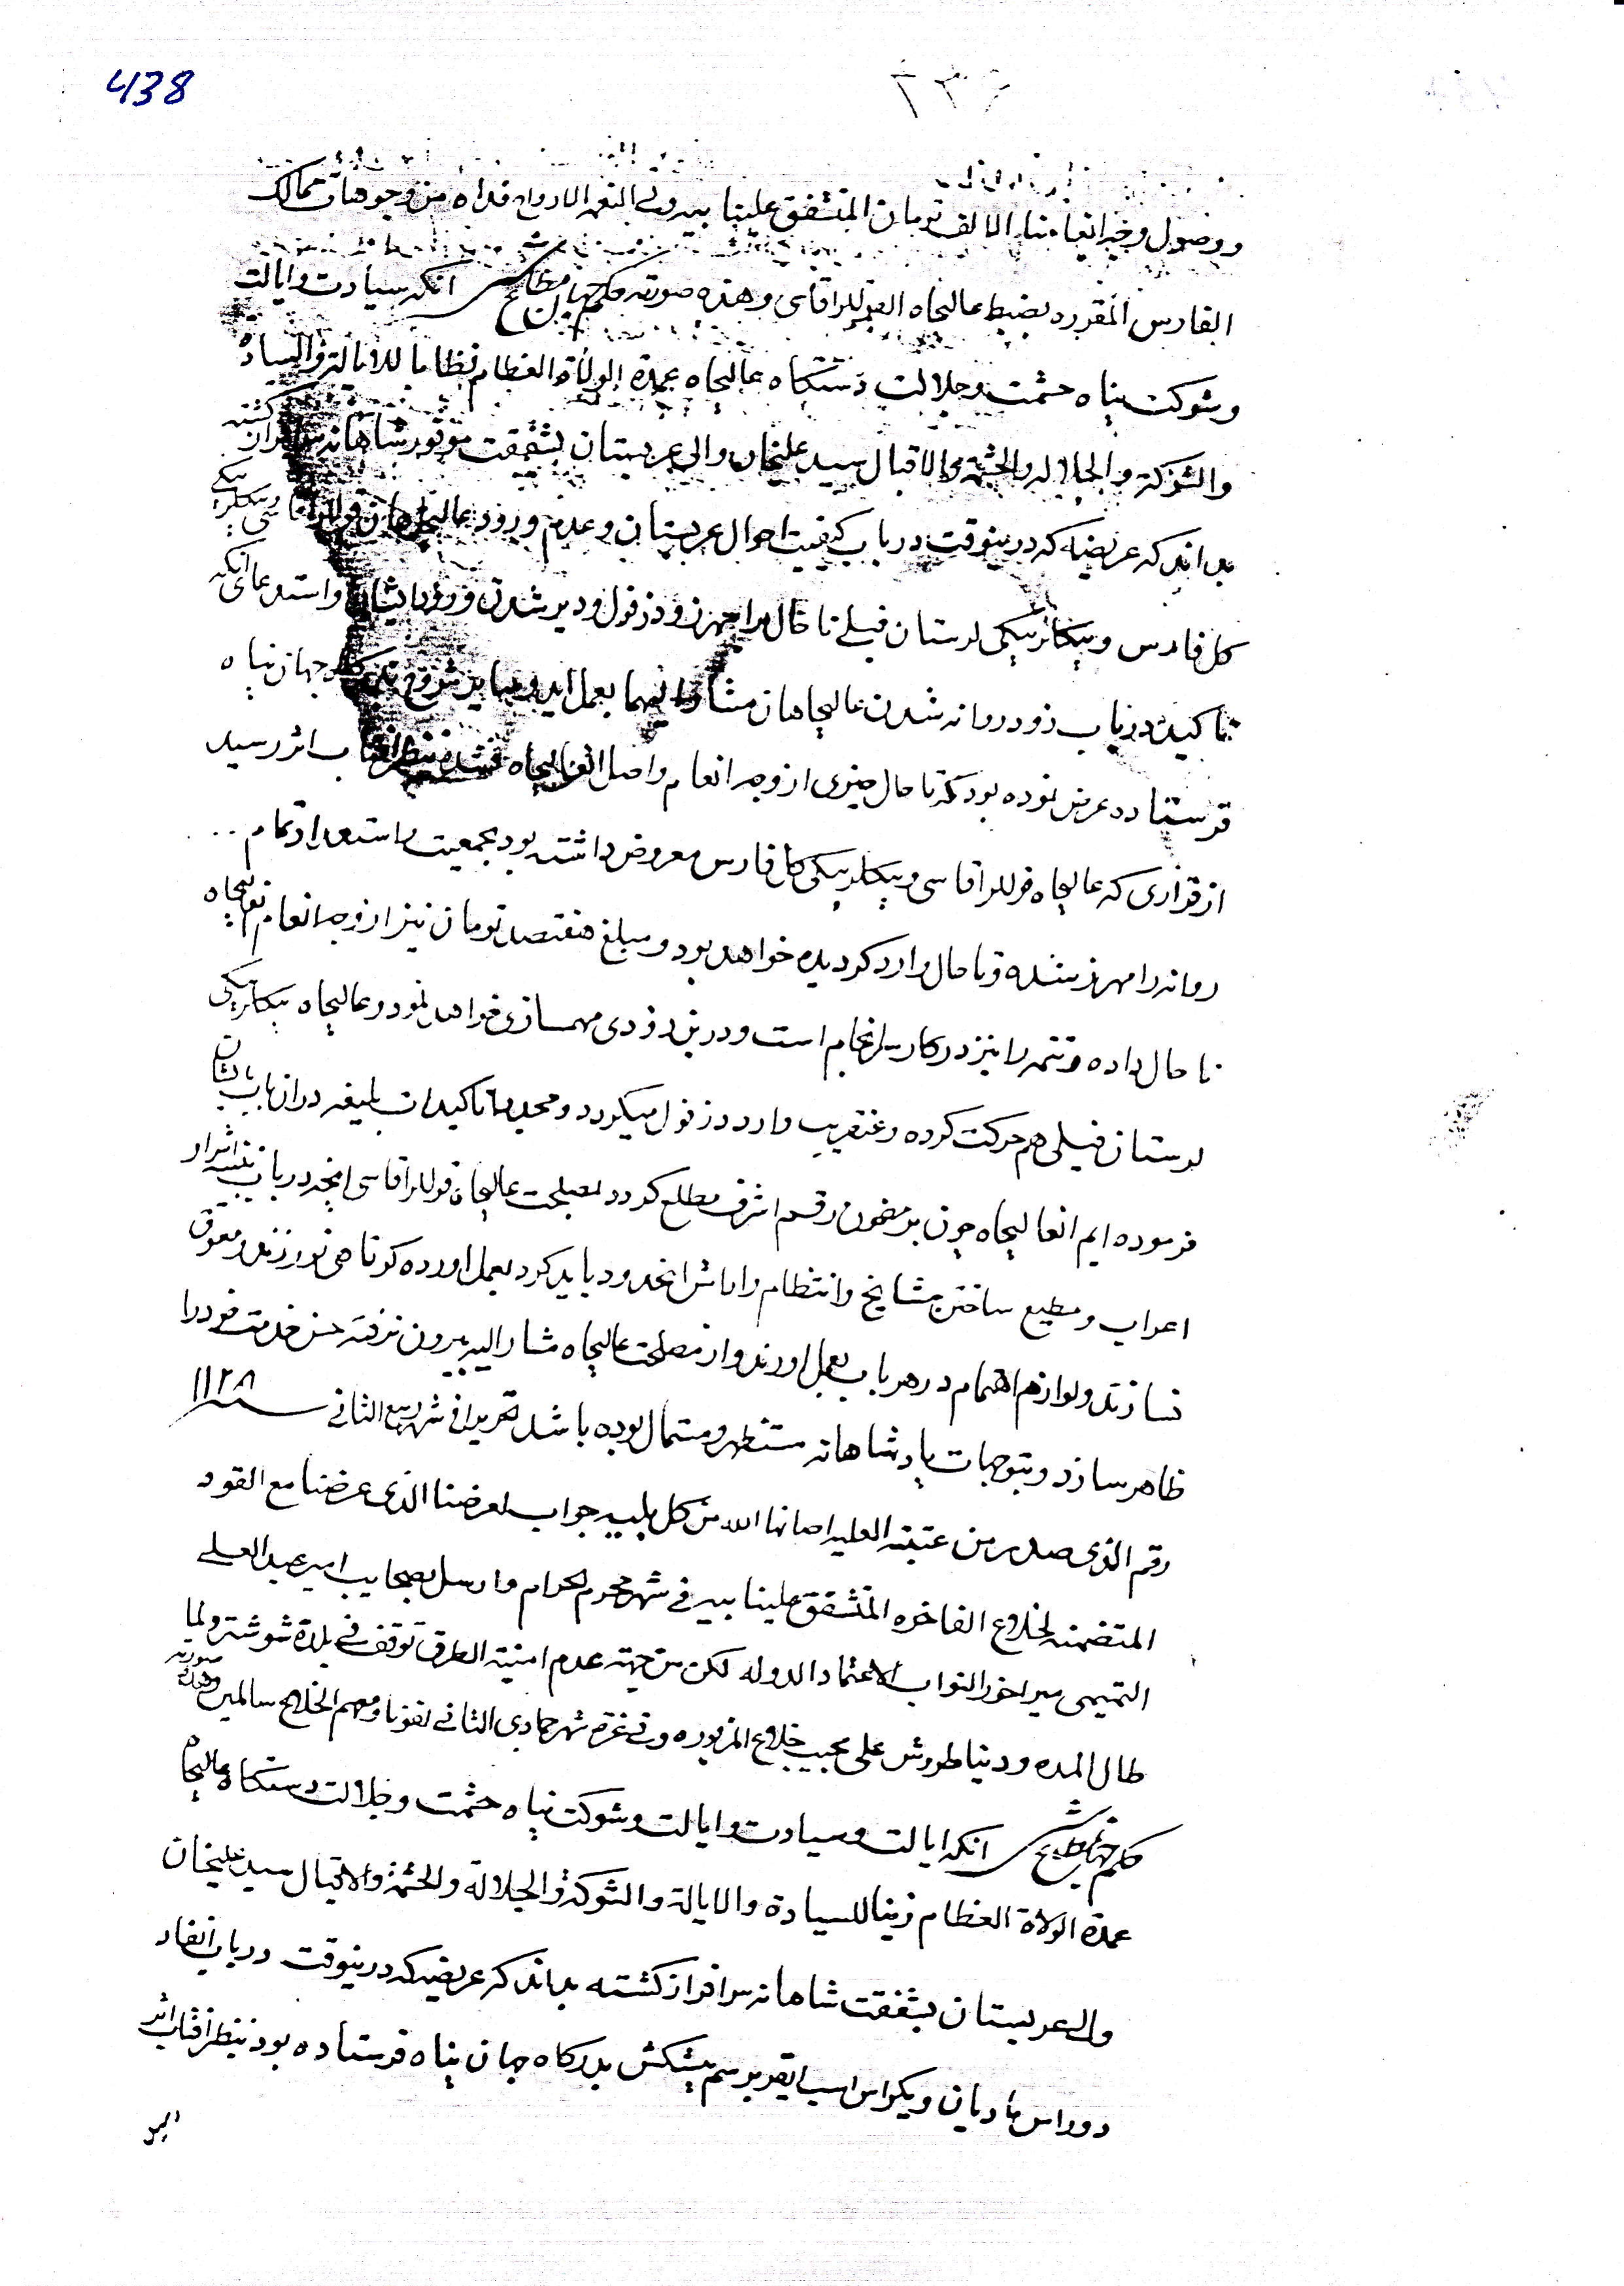 438
۴۳۶
ووصول وجه انعامنا الالف تومان المتشفق علینا بیه ولی النعم الارواح فداه من وجوهات ممالک
الفارس المقرره بضبط عالیجاه القوللراقاسی وهذه صورته حکم جهان مطاع شد انکه سیادت وایالت
وشوکت پناه حشمت وجلالت دستکاه عالیجاه عمدة الولاة العظام نظاما للایالة والسیادة
والشوکة والجلالة والحشمة والاقبال سید علیخان والی عربستان بشفقت موفور شاهانه سرافراز کشته
بداند که عریضه که درینوقت در باب کیفیت احوال عربستان وعدم ورود عالیجاهان قوللراقاسی وبیکلربیکی
کل فارس وبیکلربیکی لرستان فیلے تا حال برامهرز ودزفول ودیر شدن ورود ایشان واستدعای انکه
تاکید در باب زود روانه شدن عالیجاهان مشار الیهما بعمل اید بدرکاه جهان پناه
فرستاده عرض نموده بود که تا حال چیزی از وجه انعام واصل انعالیجاه نشده بنظر افتاب اثر رسید
از قراری که عالیجاه قوللراقاسی وبیکلربیکی کل فارس معروض داشته بود بجمعیت واستعداد تمام
روانه رامهرز شده وتا حال وارد کردیده خواهد بود ومبلغ هفتصد تومان نیز از وجه انعام بعالیجاه
تا حال داده وتتمه را نیز در کار سرانجام است ودرین زودی مهمسازی خواهد نمود وعالیجاه بیکلربیکی
لرستان فیلی هم حرکت کرده وعنقریب وارد دزفول میکردد ومجددا تاکیدات بلیغه در ان باب بایشان
فرموده ایم انعالیجاه چون بر مضمون رقم اشرف مطلع کردد بمصلحت عالیجاه قوللراقاسی انچه در باب تنبیه اشرار
اعراب ومطیع ساختن مشایخ وانتظام وارامش انحدود باید کرد بعمل اورده کوتاهی نورزند ومعوق
نسازند ولوازم اهتمام در هر باب بعمل اورند واز مصلحت عالیجاه مشار الیه بیرون نرفته حسن خدمت خود را
ظاهر سازد وبتوجهات پادشاهانه مستظهر ومستمال بوده باشد تحریرا فی شهر ربیع الثانی سنه ۱۱۲۸
رقم الذی صدر من عتبة العلیه اصانها الله من کل بلیه جواب لعرضنا الذی عرضنا مع القود
المتضمنه لخلاع الفاخره المتشفق علینا بیه فی شهر محرم الحرام وارسل بصحابب امیر عبد العلے
التمیمی میراخور النواب الاعتماد الدوله لکن من جهته عدم امنیة الطرق توقف فی بلدة شوشتر ولما
طال المده ودنیا طورش علی مجیب خلاع المزبوره وفی غره شهر جمادی الثانی لفونا ومعهم الخلاع سالمین وهذه صورته
حکم جهانمطاع شد انکه ایالت وسیادت وایالت وشوکت پناه حشمت وجلالت دستکاه عالیجاه
عمدة الولاة العظام زینا للسیادة والایالة والشوکة والجلالة والحشمة والاقبال سید علیخان
والی عربستان بشفقت شاهانه سرافراز کشته بداند که عریضه که درینوقت در باب انفاد
دوراس مادیان ویکراس اسب ایقر برسم پیشکش بدرکاه جهان پناه فرستاده بود بنظر افتاب اثر